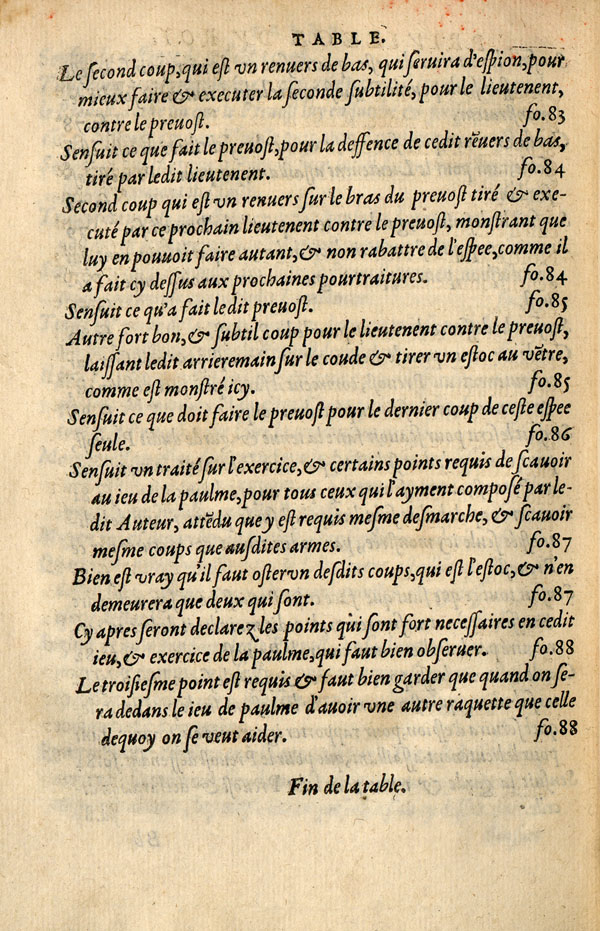 TABLE.
Le second coup, qui est vn renuers de bas, qui seruira d'espion, pour
mieux faire & executer la seconde subtilité, pour le lieutenent,
contre le preuost. fo.83
Sensuit ce que fait le preuost, pour la deffence de cedit rẽuers de bas,
tiré par ledit lieutenent. fo.84
Second coup qui est vn renuers sur le bras du preuost tiré & exe-
cuté par ce prochain lieutenent contre le preuost, monstrant que
luy en pouuoit faire autant, & non rabattre de l'espee, comme il
a fait cy dessus aux prochaines pourtraitures. fo.84
Sensuit ce qu'a fait ledit preuost. fo.85
Autre fort bon, & subtil coup pour le lieutenent contre le preuost,
laissant ledit arrieremain sur le coude & tirer vn estoc au vẽtre,
comme est monstré icy. fo.85
Sensuit ce que doit faire le preuost pour le dernier coup de ceste espee
seule. fo.86
Sensuit vn traité sur l'exercice, & certains points requis de scauoir
au ieu de la paulme, pour tous ceux qui l'ayment composé par le-
dit Auteur, attẽdu que y est requis mesme desmarche, & scauoir
mesme coups que ausdites armes. fo.87
Bien est vray qu'il faut oster vn desdits coups, qui est l'estoc, & n'en
demeurera que deux qui sont. fo.87
Cy apres seront declarez les points qui sont fort necessaires en cedit
ieu, & exercice de la paulme, qui faut bien obseruer. fo.88
Le troisiesme point est requis & faut bien garder que quand on se-
ra dedans le ieu de paulme d'auoir vne autre raquette que celle
dequoy on se veut aider. fo.88
Fin de la table.